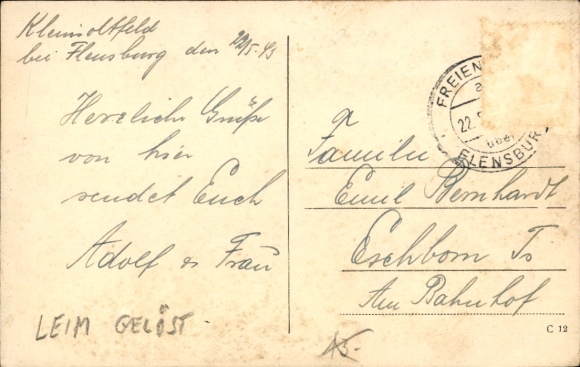 Kleinsoltfeld
bei Flensburg den 22/5.43
Herzliche Grüße
von hier
sendet Euch
Adolf u Frau
LEIM GELÖST.
FREIEN
22.
über
FLENSBUR
Familie
Emil Bernhardt
Eschborn Ts
Am Bahnhof
C 12